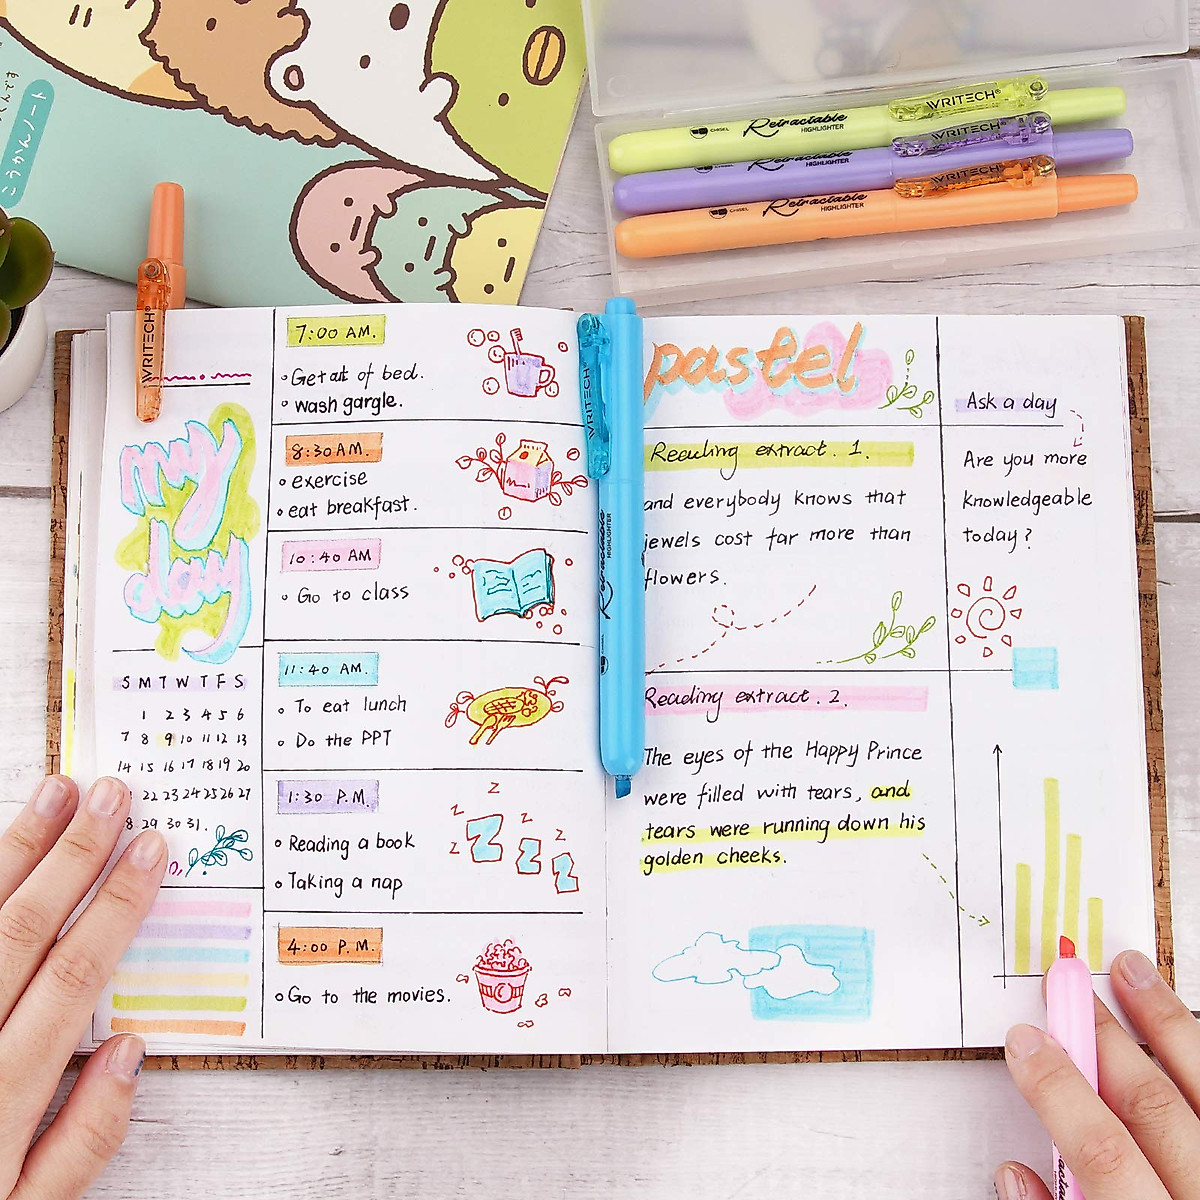 こうかんノート
WRITECH
CHISEL Retractable HIGHLIGHTER WRITECH
CHISEL Retractable HIGHLIGHTER WRITECH
CHISEL Retractable HIGHLIGHTER WRITECH
WRITECH
Retractable HIGHLIGHTER
my
day
S M T W T F S
1 2 3 4 5 6
7 8 9 10 11 12 13
14 15 16 17 18 19 20
22 23 24 25 26 27
8 29 30 31.
7:00 AM.
Get out of bed.
wash gargle.
8:30 AM.
exercise
eat breakfast.
10:40 AM
Go to class
11:40 AM.
To eat lunch
Do the PPT
1:30 P.M.
Reading a book
Taking a nap
Z
Z Z
Z Z
Z Z
Z Z
4:00 P.M.
Go to the movies.
pastel
Reading extract. 1.
and everybody knows that
jewels cost far more than
flowers.
Reading extract. 2.
The eyes of the Happy Prince
were filled with tears, and
tears were running down his
golden cheeks.
Ask a day
Are you more
knowledgeable
today?